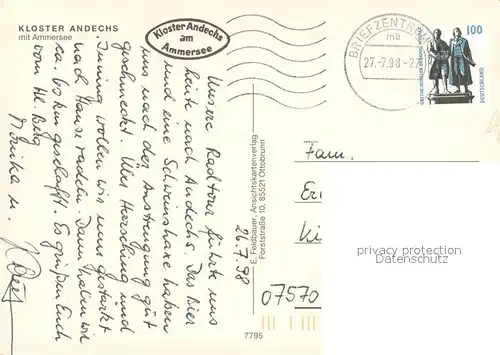 KLOSTER ANDECHS
mit Ammersee
Kloster Andechs
am
Ammersee
BRIEFZENTRUM
mb
27.-7.98-22
100
DEUTSCHLAND
26.7.98
Unsere Radtour führte uns
heute nach Andechs. Das Bier
und eine Schweinshaxe haben
uns nach der Anstrengung gut
geschmeckt. Über Herrsching und
Inning wollen wir uns gestärkt
nach Hause radeln. Dann haben wir
ca. 60 km geschafft. Es grüßen Euch
vom Hl. Berg
Monika u.
E. Feldbauer, Ansichtskartenverlag
Forststraße 10, 85521 Ottobrunn
Fam.
07570
7795
privacy protection
Datenschutz